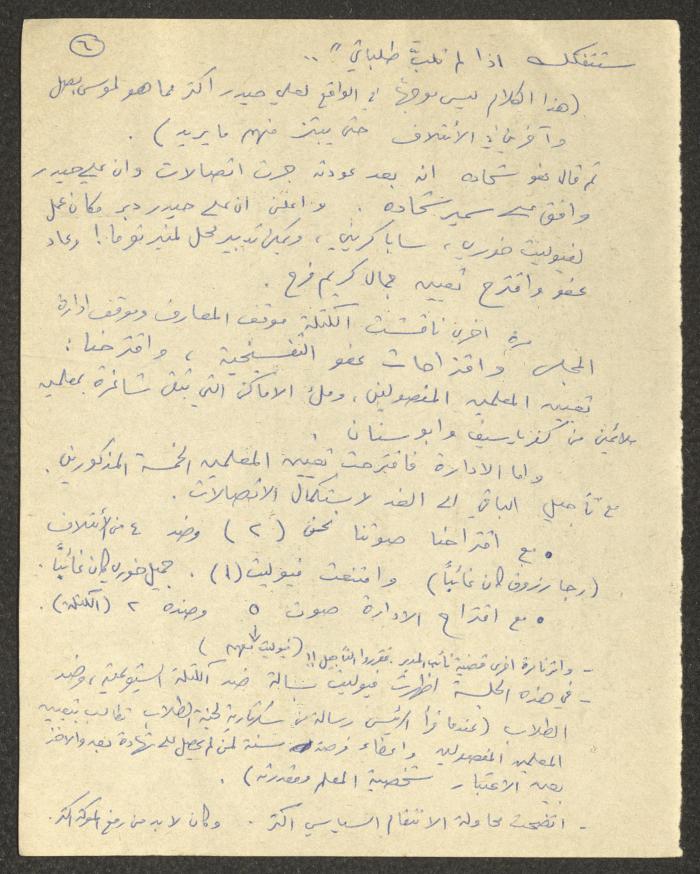 ٦
ستتفكك اذا لم تلبَّ طلباتي" ..
(هذا الكلام ليس موجهاً في الواقع لعلي حيدر اكثر مما هو لموسى
وآخرين في الائتلاف حتى يبتز منهم ما يريد) .
ثم قال عفو شحاده انه بعد عودته جرت اتصالات وان علي حيدر
وافق على سمير شحاده . واعلن ان علي حيدر دبر مكان عمل
لفيوليت خوري ، سابا كريني ، ويمكن تدبير محل لمنير توما ! وعاد
عفو واقترح تعيين جمال كريم فرح .
مرة اخرى ناقشت الكتلة موقف المعارف وموقف ادارة
المجلس واقتراحات عفو التفسخية ، واقترحنا :
تعيين المعلمين المفصولين ، وملء الاماكن التي تبقى شاغرة بمعلمين
ملائمين من كفرياسيف وابوسنان
واما الادارة فاقترحت تعيين المعلمين الخمسة المذكورين .
مع تأجيل الباقي الى الغد لاستكمال الاتصالات .
• مع اقتراحنا صوتنا نحن (٢) وضد ٤ من الائتلاف
(رجا رزوق كان غائباً) وامتنعت فيوليت (١) . جميل خوري كان غائباً .
• مع اقتراح الادارة صوت ٥ وضده ٢ (الكتلة) .
(فيوليت منهم)
- واثر ثارة اخرى قضية نائب المدير فقرروا التأجيل !!
- في هذه الجلسة اظهرت فيوليت بسالة ضد الكتلة الشيوعية ، وضد
الطلاب (عندما قرأ الرئيس رسالة من سكرتارية لجنة الطلاب تطالب بتعيين
المعلمين المفصولين واعطاء فرصة سنة لمن لم يحصل على شهادة بعد والاخذ
بعين الاعتبار شخصية المعلم ومقدرته) .
- اتضحت محاولة الانتقام السياسي اكثر . وكان لا بد من رفع المعركة اكثر .